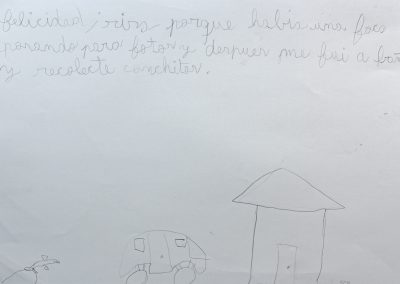 felicidad, risa porque había una foca
posando para fotos y despues me fui a
y recolecte conchitas.